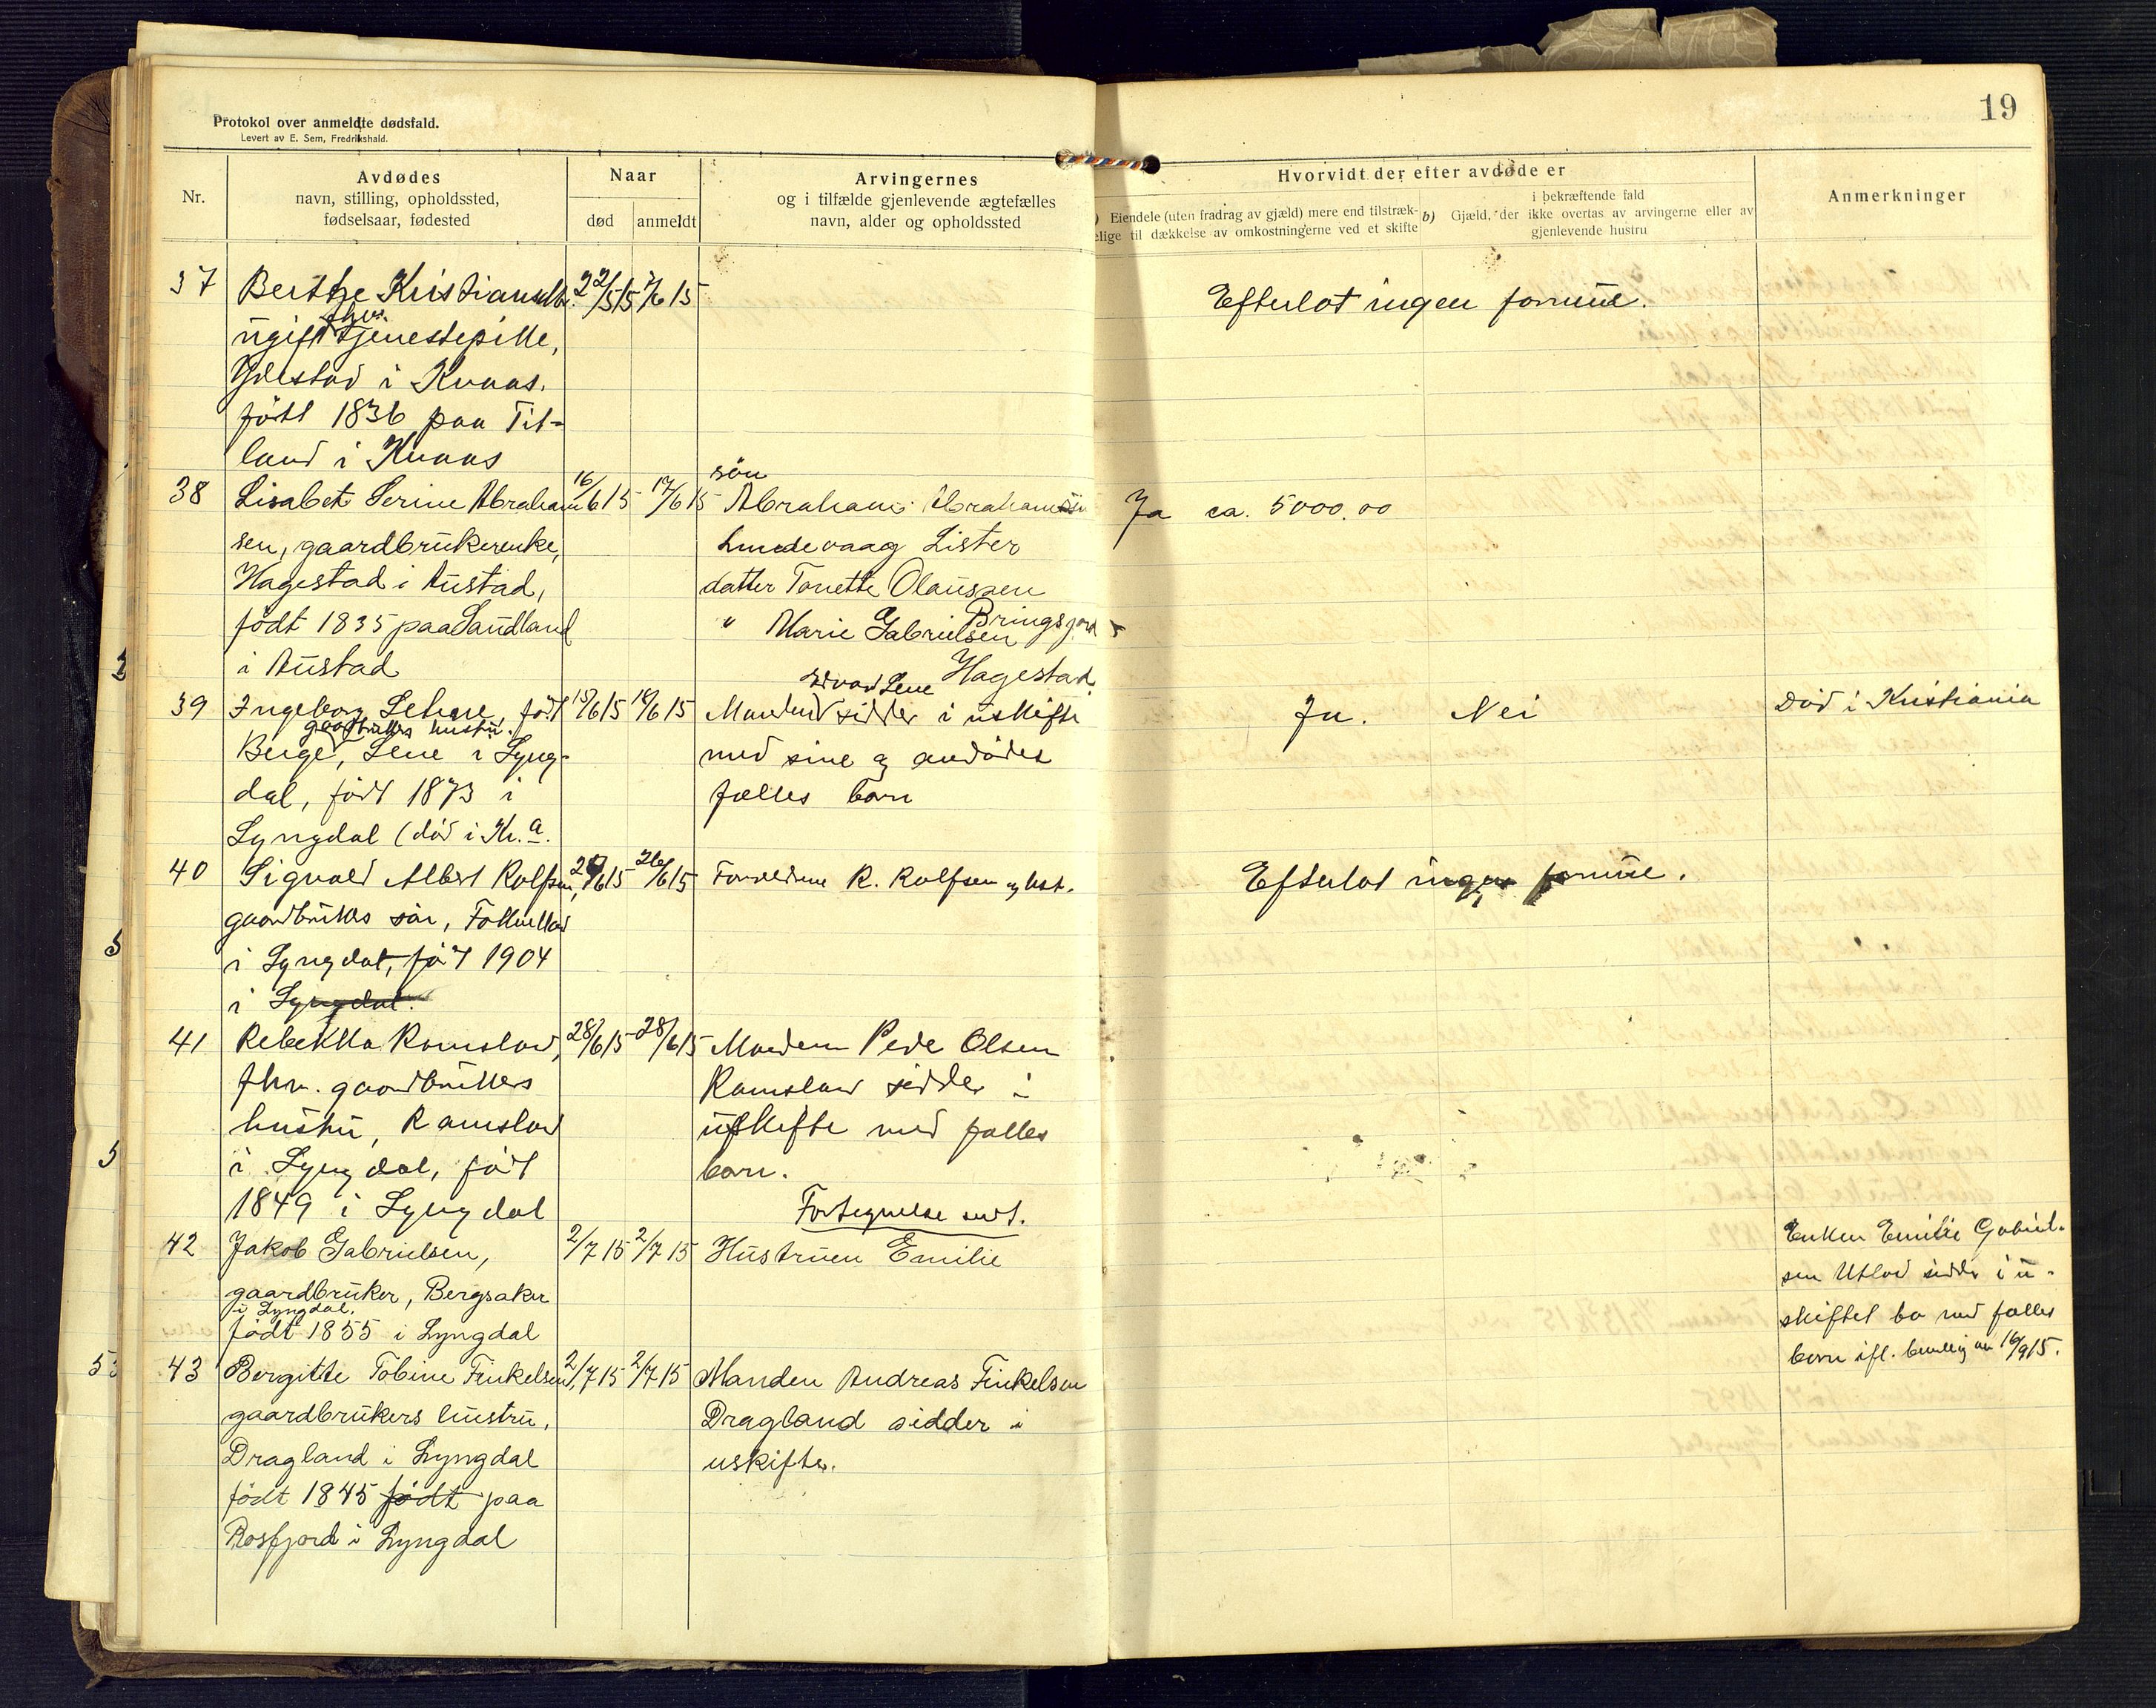 19
Protokol over anmeldte dødsfald.
Levert av E. Sem, Fredrikshald.
Nr.
Avdødes
navn, stilling, opholdssted,
fødselsaar, fødested
Naar
død
anmeldt
Arvingernes
og i tilfælde gjenlevende ægtefælles
navn, alder og opholdssted
Hvorvidt der efter avdøde er
) Eiendele (uten fradrag av gjæld) mere end tilstræk-
elige til dækkelse av omkostningerne ved et skifte
b) Gjæld, der
i bekræftende fald
ikke overtas av arvingerne eller av
gjenlevende hustru
Anmerkninger
37
Berthe Kristiansdtr.
fhv.
ugift tjenestepike,
i Kvaas.
født 1836 paa Tit-
land i Kvaas
22/5 15
7/6 15
Efterlot ingen formue.
38
Lisabet Serine Abraham
sen, gaardbrukerenke,
Hagestad i Austad,
født 1835 paa Sandland
i Austad
16/6 15
17/6 15
søn
Abraham Abrahamsen
Lundevaag Lister
datter Tonette Olaussen
Bringsjord
" Marie Gabrielsen
Hagestad
Ja ca. 5000.00
39
Ingeborg Lehne, født
gaardbrukers hustru.
Berge, Lene i Lyng-
dal, født 1873 i
Lyngdal (død i Kr.a.
15/6 15
18/6 15
Lene
Manden sidder i uskifte
med sine og avdødes
fælles børn
Ja. Nei
Død i Kristiania
40
Sigvald Albert Rolfsen,
gaardbrukers søn,
i Lyngdal, født 1904
i Lyngdal.
26/6 15
Forældrene R. Rolfsen og hst.
Efterlot ingen formue.
41
Rebekka Ramsland,
fhv. gaardbrukers
hustru, Ramsland
i Lyngdal, født
1849 i Lyngdal
28/6 15
28/6 15
Manden Peder Olsen
Ramsland sidder i
uskifte med fælles
børn.
Fortegnelse sendt.
42
Jakob Gabrielsen,
gaardbruker, Bergsaker
i Lyngdal.
født 1855 i Lyngdal
2/7 15
2/7 15
Hustruen Emilie
Enken Emilie Gabriel-
sen Utland sidder i u-
skiftet bo med fælles
børn ifl. bevilling av 16/9 15.
43
Bergitte Tobine Tinkelsen,
gaardbrukers hustru,
Dragland i Lyngdal
født 1845 født paa
Rosfjord i Lyngdal
2/7 15
2/7 15
Manden Andreas Tinkelsen
Dragland sidder i
uskifte.